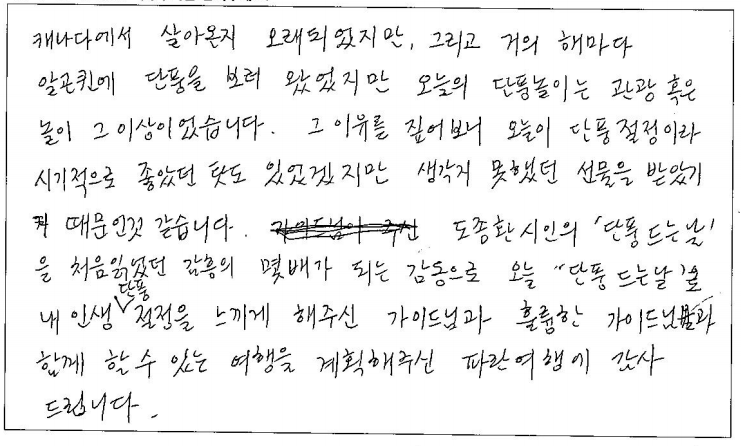 캐나다에서 살아온지 오래되었지만, 그리고 거의 해마다
알곤퀸에 단풍을 보러 왔었지만 오늘의 단풍놀이는 관광 혹은
놀이 그 이상이었습니다. 그 이유를 짚어보니 오늘이 단풍절정이라
시기적으로 좋았던 탓도 있었겠지만 생각지 못했던 선물을 받았기
때문인것 같습니다. 도종환시인의 '단풍 드는날'
을 처음읽었던 감흥의 몇배가 되는 감동으로 오늘 "단풍 드는날"을
내 인생 단풍 절정을 느끼게 해주신 가이드님과 훌륭한 가이드님과
함께 할 수 있는 여행을 계획해주신 파란여행에 감사
드립니다.